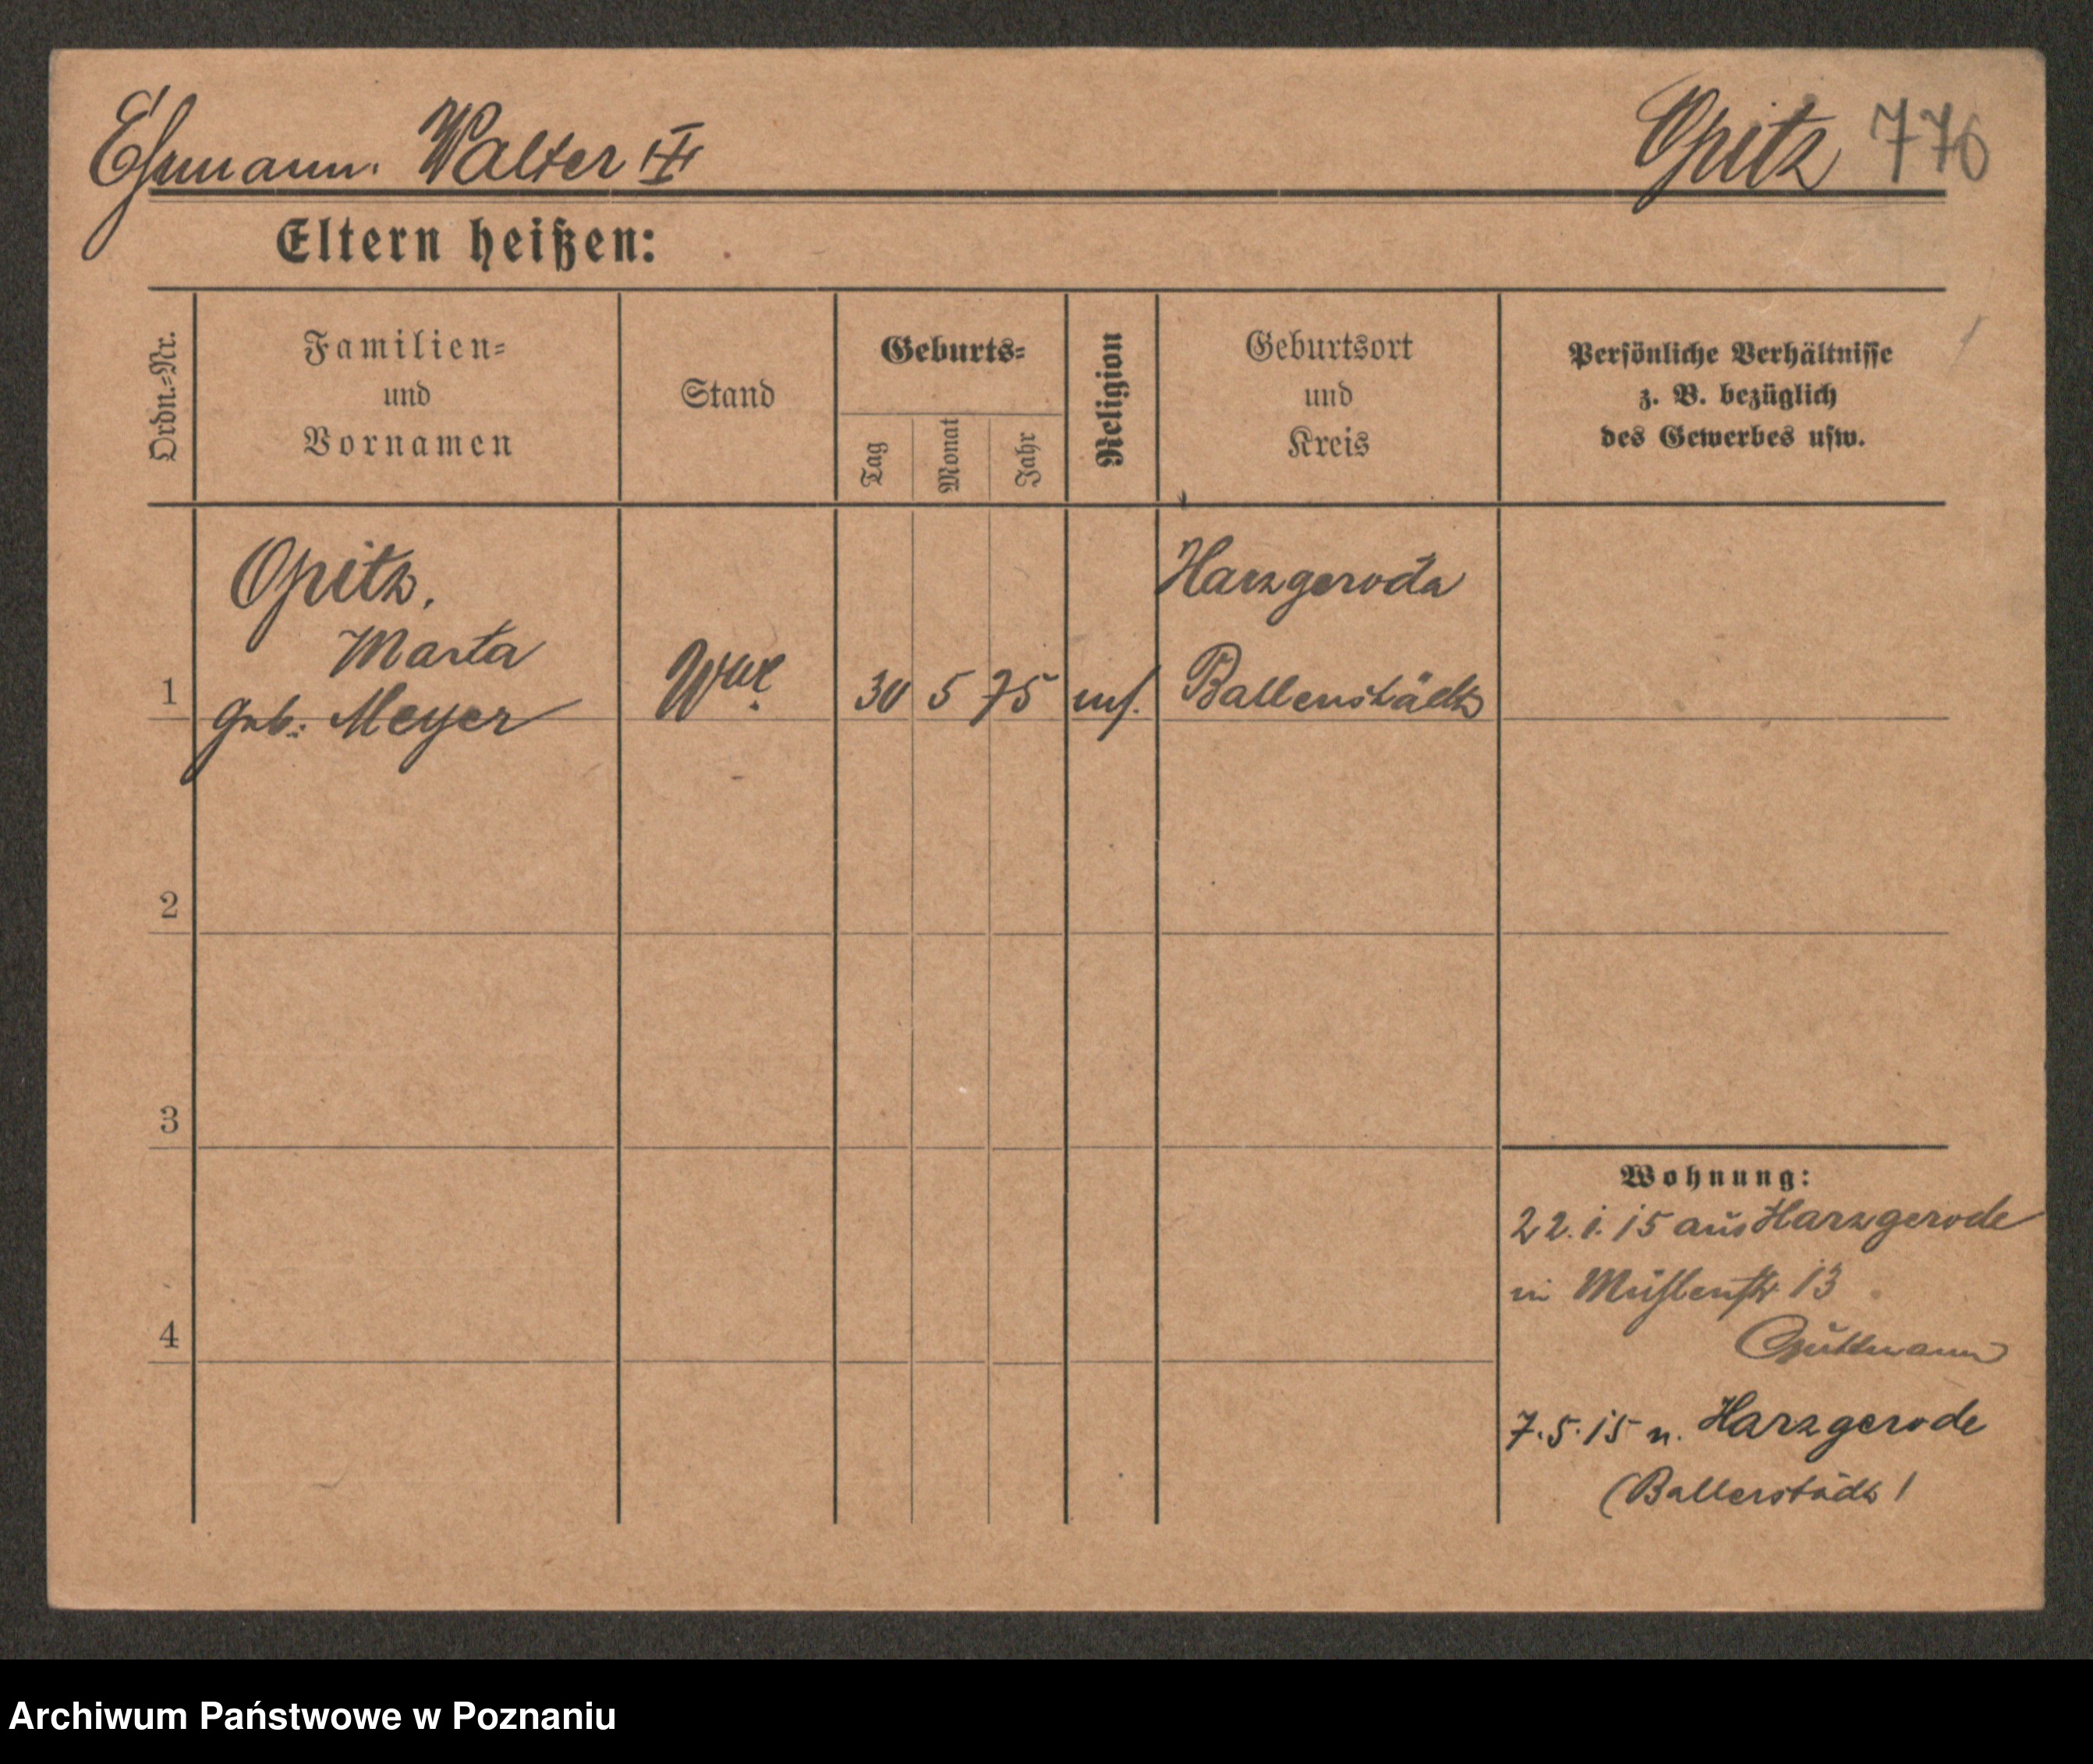 Ehmann. Walter III Opitz 776
Eltern heißen:
Ordn.-Nr.
Familien-
und
Vornamen
Stand
Geburts-
Tag
Monat
Jahr
Religion
Geburtsort
und
Kreis
Persönliche Verhältnisse
z. B. bezüglich
des Gewerbes usw.
Opitz,
Marta
1 geb: Meyer Wwe 30 5 75 Ballenstädt
Harzgeroda
2
3
4
Wohnung:
22.1.15 aus Harzgerode
in Mühlenstr 13
Guttmann
7.5.15 n. Harzgerode
(Ballerstädt)
Archiwum Państwowe w Poznaniu